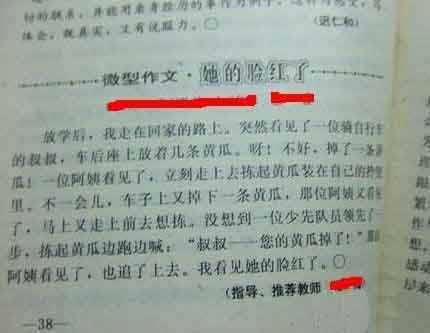 切的联系，并能用亲身经历的事作为例子，这样
体会，既真实，又有说服力。〇
（迟仁和）
微型作文·她的脸红了
放学后，我走在回家的路上。突然看见了一位骑自行车
的叔叔，车后座上放着几条黄瓜。呀！不好，掉了一条黄
瓜！一位阿姨看见了，立刻走上去拣起黄瓜装在自己的
里。不一会儿，车子上又掉下一条黄瓜，那位阿姨又看
了，马上又走上前去想拣。没想到一位少先队员领先了一
步，拣起黄瓜边跑边喊：“叔叔——您的黄瓜掉了！”
阿姨看见了，也追了上去。我看见她的脸红了。〇
（指导、推荐教师
—38—
想，
感动